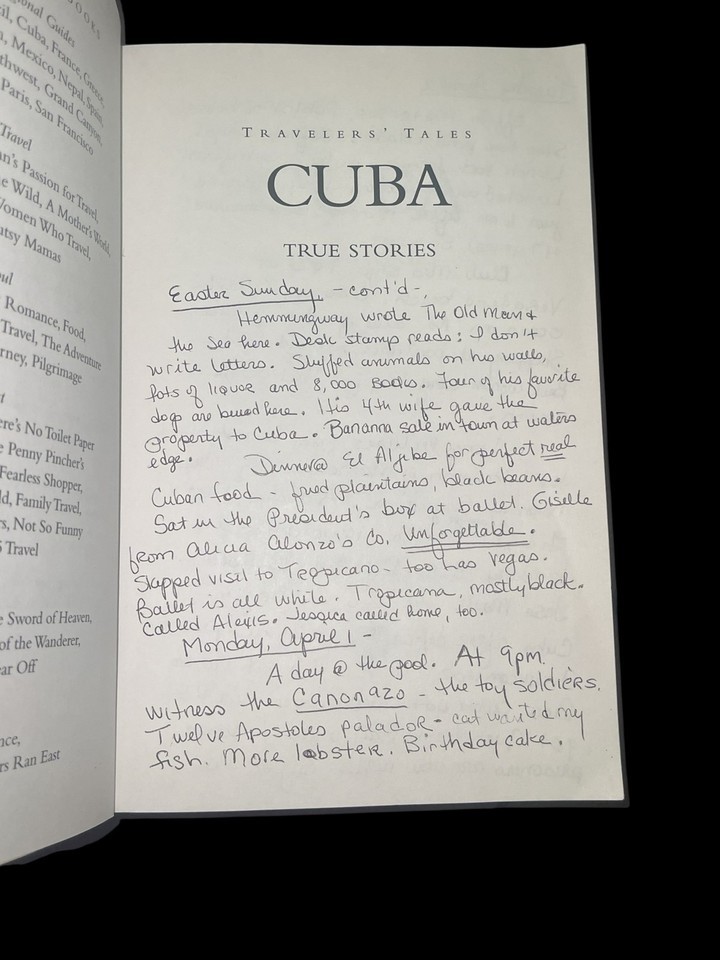 BOOKS
onal Guides
il, Cuba, France, Greece,
n, Mexico, Nepal, Spain,
thwest, Grand Canyon,
Paris, San Francisco
Travel
an's Passion for Travel,
e Wild, A Mother's World,
Women Who Travel,
utsy Mamas
ul
Romance, Food,
Travel, The Adventure
rney, Pilgrimage
t
ere's No Toilet Paper
e Penny Pincher's
Fearless Shopper,
ld, Family Travel,
rs, Not So Funny
Travel
e Sword of Heaven,
of the Wanderer,
ar Off
nce,
rs Ran East
TRAVELERS' TALES
CUBA
TRUE STORIES
Easter Sunday, - cont'd -,
Hemmingway wrote The Old Man &
the Sea here. Desk stamp reads: I don't
write letters. Stuffed animals on his walls,
lots of liquor and 8,000 books. Four of his favorite
dogs are buried here. His 4th wife gave the
property to Cuba. Bananna sale in town at waters
edge. Dinner @ El Aljibe for perfect real
Cuban food - fried plaintains, black beans.
Sat in the President's box at ballet. Giselle
from Alicia Alonzo's Co. Unforgettable.
Skipped visit to Tropicano - too Las Vegas.
Ballet is all white. Tropicana, mostly black.
Called Alexis. Jessica called home, too.
Monday, April 1 -
A day @ the pool. At 9pm.
witness the Canonazo - the toy soldiers.
Twelve Apostoles palador - cat wanted my
fish. More lobster. Birthday cake.